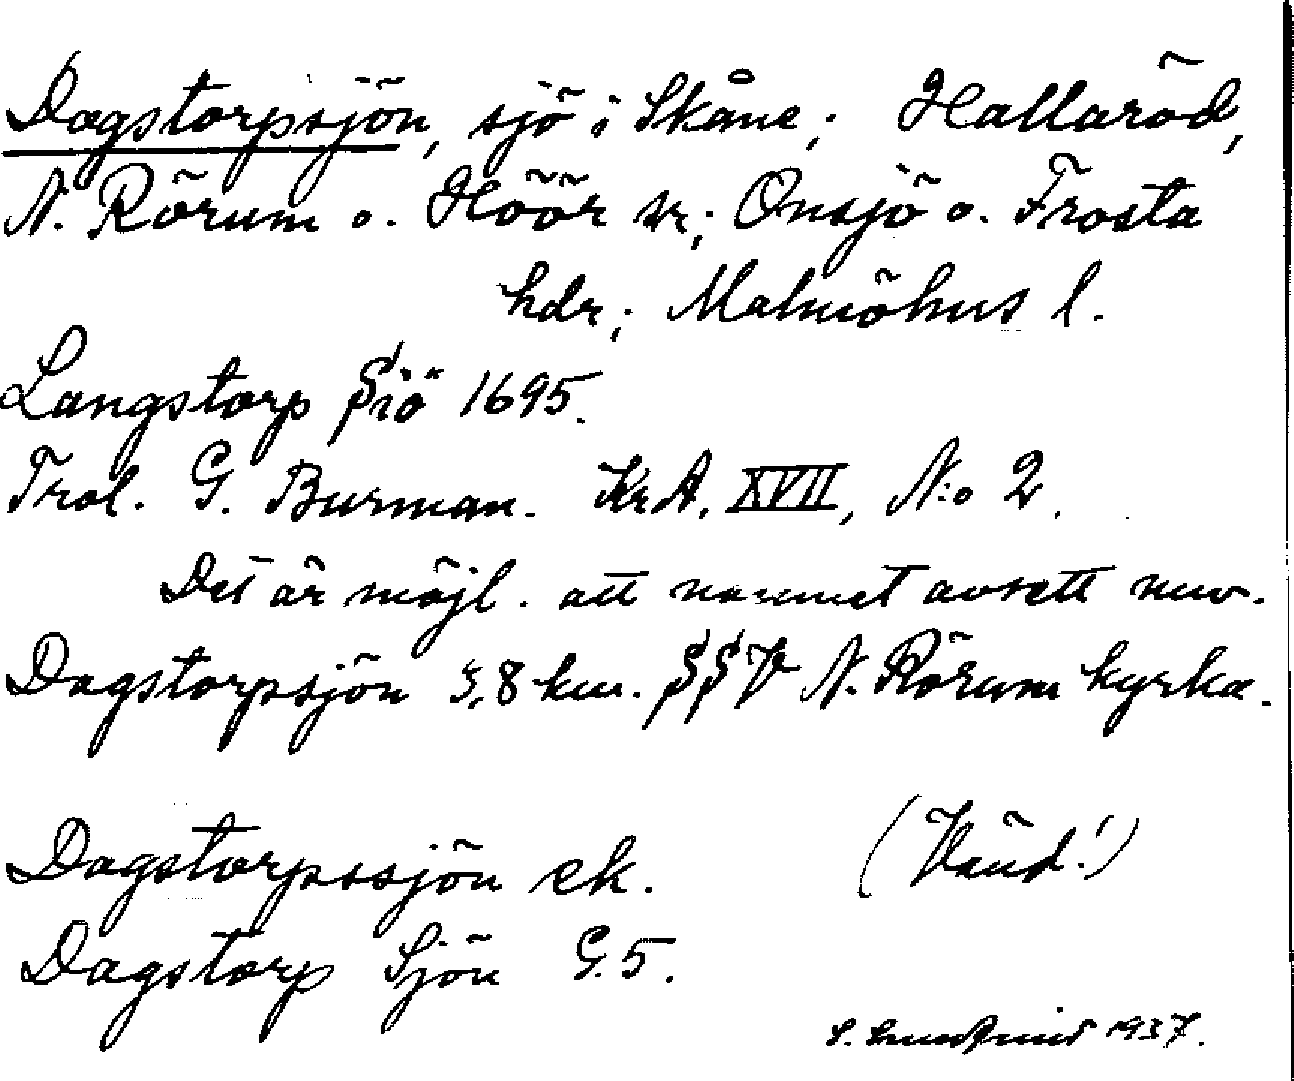 Dagstorpsjön, sjö i Skåne; Hallaröd,
N. Rörum o. Höör sr; Onsjö o. Frosta
hdr; Malmöhus l.
Langstorp Siö 1695.
Trol. G. Burman. KrA. XVII, N:o 2.
Det är möjl. att namnet avsett nuv.
Dagstorpsjön 3,8 km. SSV N. Rörum kyrka.
Dagstorpssjön ek. (Vänd!)
Dagstorp Sjön G.5.
S. 1937.